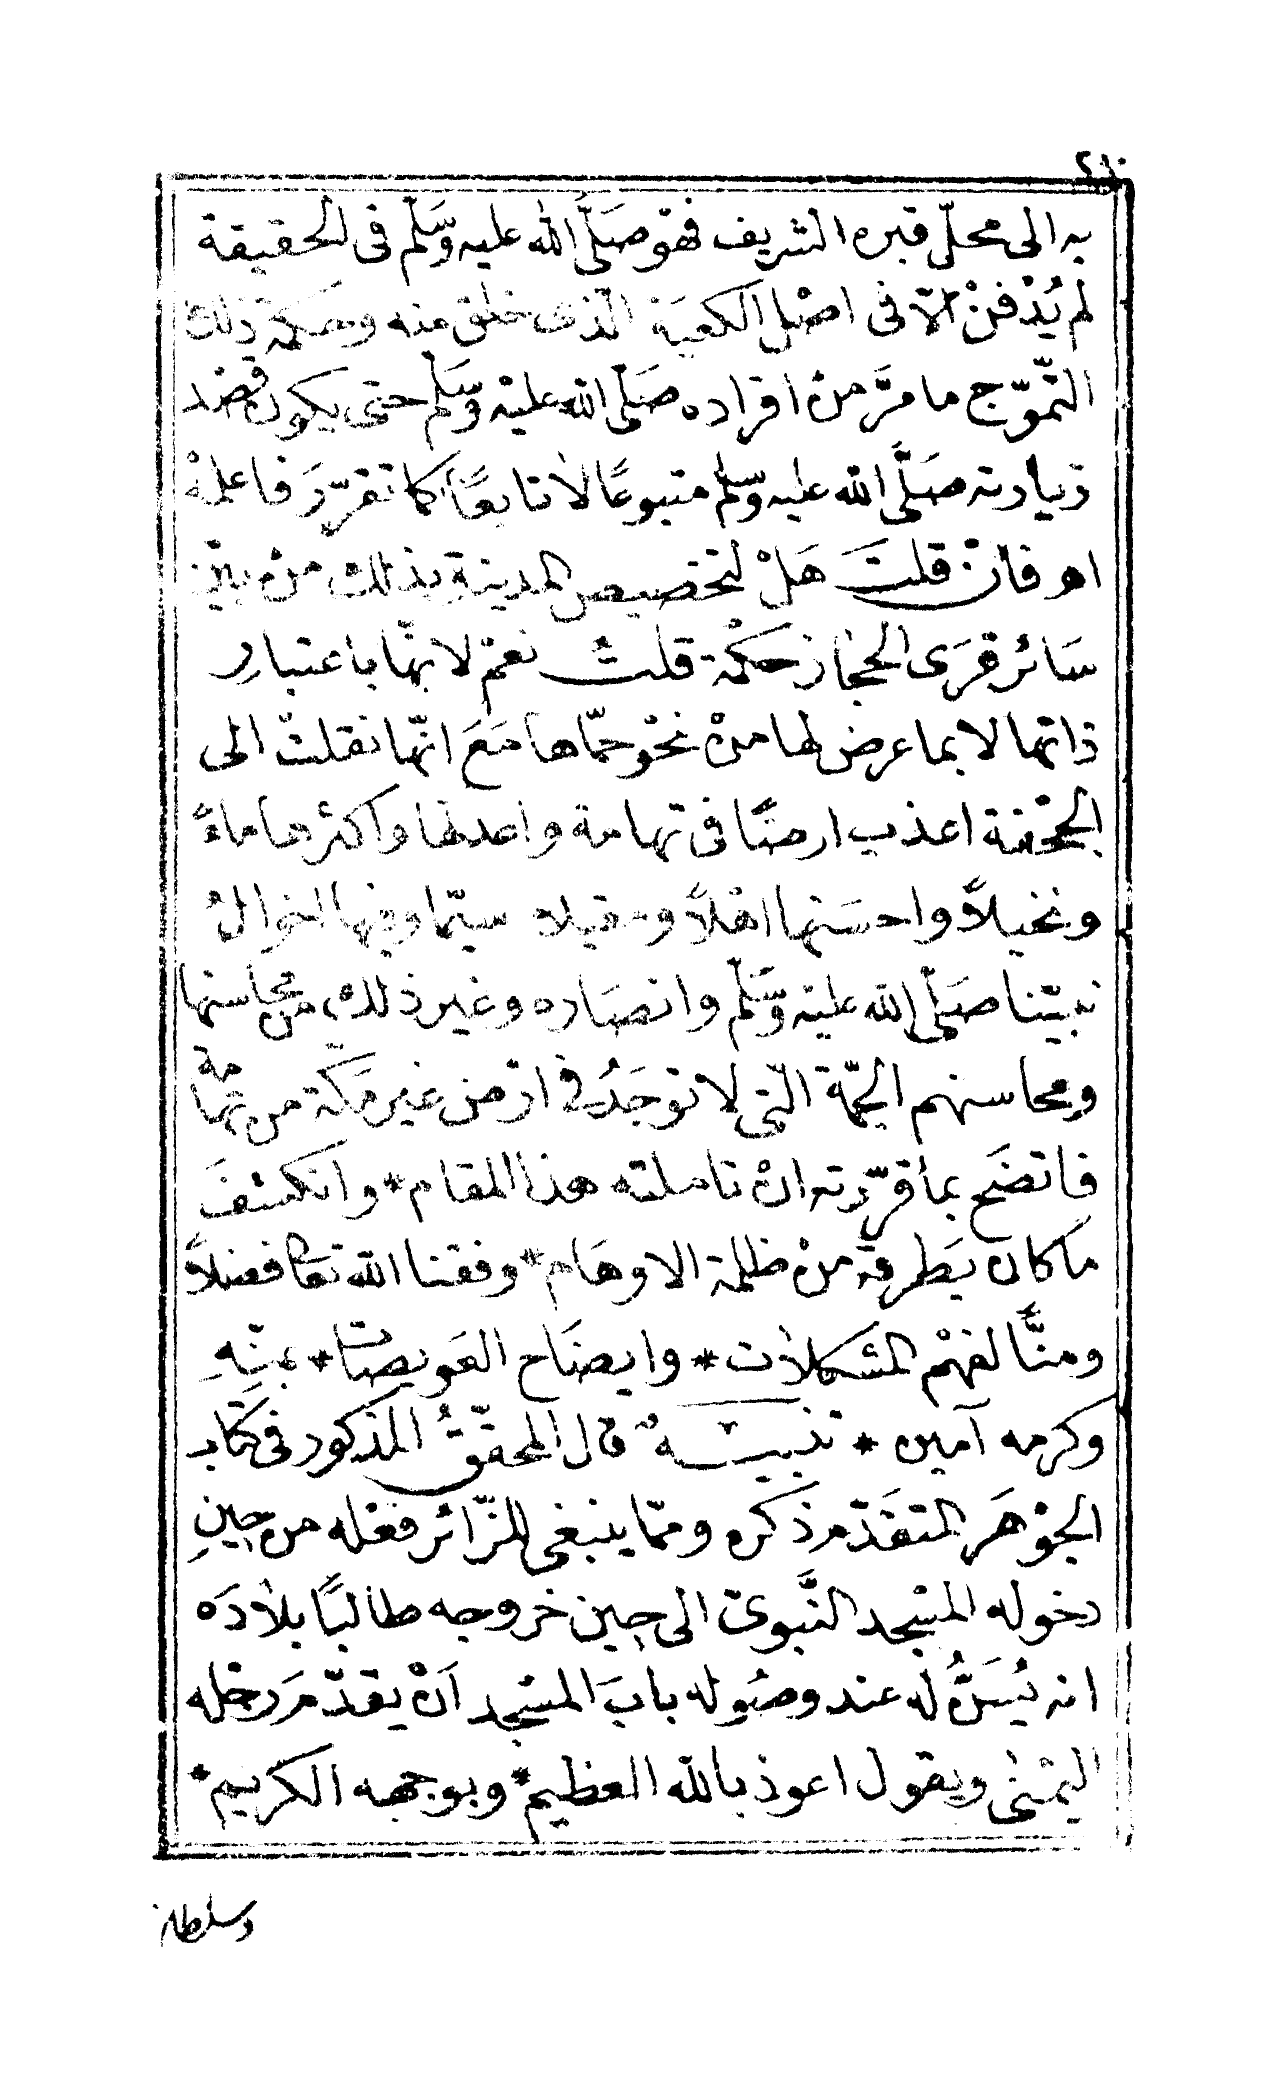 ٢١٠
به الى محلّ قبره الشريف فهو صَلَّى الله عليه وَسَّلم فى الحقيقة
لم يُدْفنْ الاّ فى اصْل الكعبَة الذى خلق منه وحكمة ذلك
التّموّج ما مرَّ منْ افراده صَلّى الله عليْه وَسَلّم حتى يكون قصْد
زيارته صَلَّى الله عليه وسّلم متبوعًا لا تابعًا كما تقرّرَ فاعلمْهُ
اهـ فان قلتَ هَلْ لتخصيص المدينةِ بذلك منْ بيْن
سَائر قرَى الحجاز حكْمة قلتُ نعمْ لانّها باعتبارِ
ذاتها لا بما عرض لها منْ نحْو حمّاها مَعَ انّها نقلتْ الى
الجُحْفة اعذب ارضًا فى تهامة واعدلها واكثرها ماءً
ونخيلاً واحسَنها اهْلاً ومقيلا سيّما وفيها اخوالُ
نبيّنا صَلّى الله عليْه وَسَّلّم وانصَاره وغير ذلك من محاسنها
ومحاسنهم الجمّة الّتى لا توجَدُ فى ارْض غير مَكّة من تهامة
فاتضَح بما قرّرته انْ تاملته هذا المقام * وانكشفَ
ما كان يَطرقه منْ ظلمة الاوهَام * وفقنا الله تعا فضلاً
ومنًّا لفهْم المشكلاَت * وايضَاح العَويصَات * بمنّهِ
وكرمه آمين * تنبيـــهٌ قال المحقّقُ المذكور فى كتاب
الجوْهَر المتقَدّم ذكره وممّا ينبغى للزّائر فعْله من حِينِ
دخوله المسْجد النَّبوىّ الى حِين خروجه طالبًا بلاَدَه
انه يُسَنُّ له عند وصُوله بابَ المسْجد اَنْ يقدّمَ رجْله
اليمْنى ويقول اعوذ بالله العظيم * وبوجهه الكريم *
وسلطانه